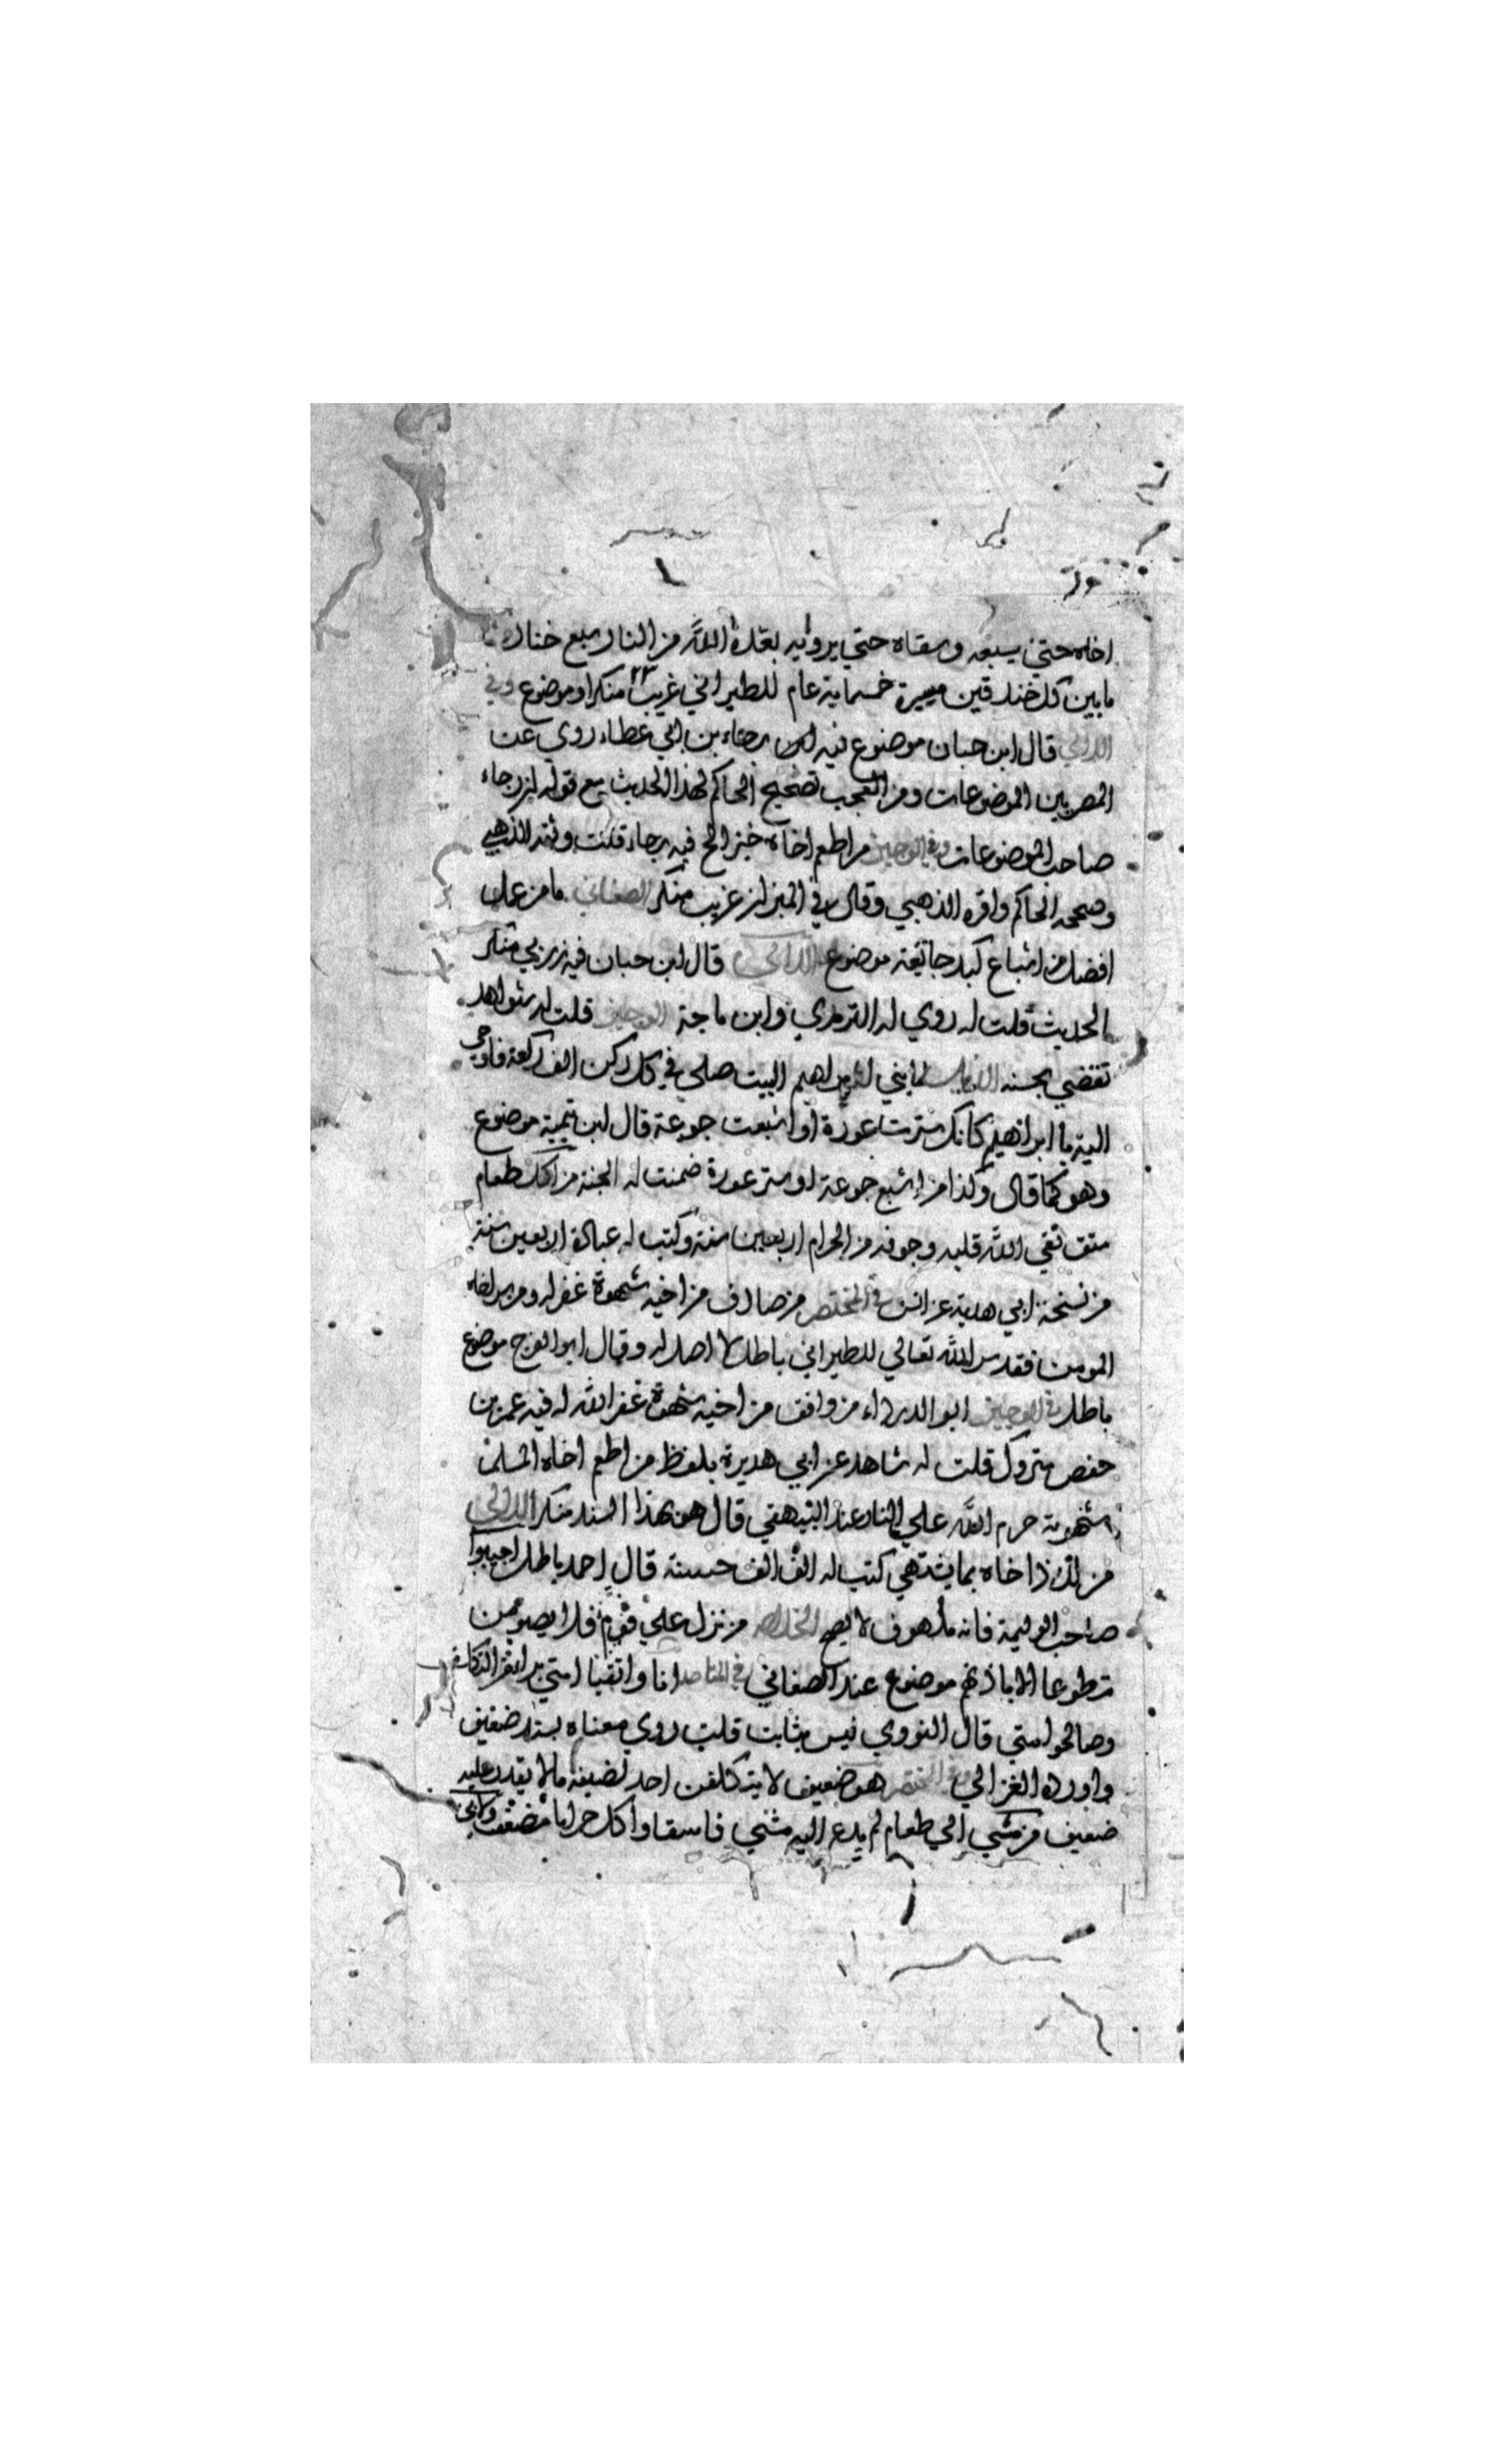 اخاه حتي يسبعه وسقاه حتي يرويه بعده الله من النار سبع خنادق
مابين كل خندقين مسيرة خمسماية عام للطبراني غريب منكر او موضوع وفي
اللالي قال ابن حبان موضوع فيه رجاء بن ابي عطاء روي عن
المصريين الموضوعات ومن العجب تصحيح الحاكم لهذا الحديث مع قوله ان رجاء
صاحب الموضوعات وفي الوجيز من اطعم اخاه خبز الخ فيه رجاء قلت وثقه الذهبي
وصححه الحاكم واقره الذهبي وقال في الميزان غريب منكر الصغاني ما من عمل
افضل من اشباع كبد جائعة موضوع اللالي قال ابن حبان فيه زربي منكر
الحديث قلت له روي له الترمذي وابن ماجة الوجيز قلت له شواهد
تقضي بحسنه الذيل لما بني ابراهيم البيت صلي في كل ركن الف ركعة فاوحي
اليه يا ابراهيم كانك سترت عورة او اشبعت جوعة قال ابن تيمية موضوع
وهو كما قال وكذا من اشبع جوعة او ستر عورة ضمنت له الجنة من اكل طعام
متق نقي الله قلبه وجوفه من الحرام اربعين سنة وكتب له عبادة اربعين سنة
من نسخة ابي هدبة عن انس في المختصر من صادف من اخيه شهوة غفر له ومن سر اخاه
المومن فقد سر الله تعالي للطبراني باطل لا اصل له وقال ابو الفرج موضوع
باطل في الوجيز ابو الدرداء من وافق من اخيه شهوة غفر الله له فيه عمر بن
حفص متروك قلت له شاهد عن ابي هريرة بلفظ من اطعم اخاه المسلم
شهوته حرم الله علي النار عند البيهقي قال هو بهذا السند منكر اللالي
من لذذ اخاه بما يشتهي كتب له الف الف حسنة قال احمد باطل اجيبوا
صاحب الوليمة فانه ملهوف لا يصح الخلاصه من نزل علي قوم فلا يصومن
تطوعا الا باذنهم موضوع عند الصغاني في المقاصد انا واتقيا امتي براء من التكلف
وصالحوا امتي قال النووي ليس بثابت قلت روي معناه بسند ضعيف
واورده الغزالي وفي المختصر هو ضعيف لا يتكلفن احد لضيفه ما لا يقدر عليه
ضعيف من مشي الي طعام لم يدع اليه مشي فاسقا واكل حراما ضعف